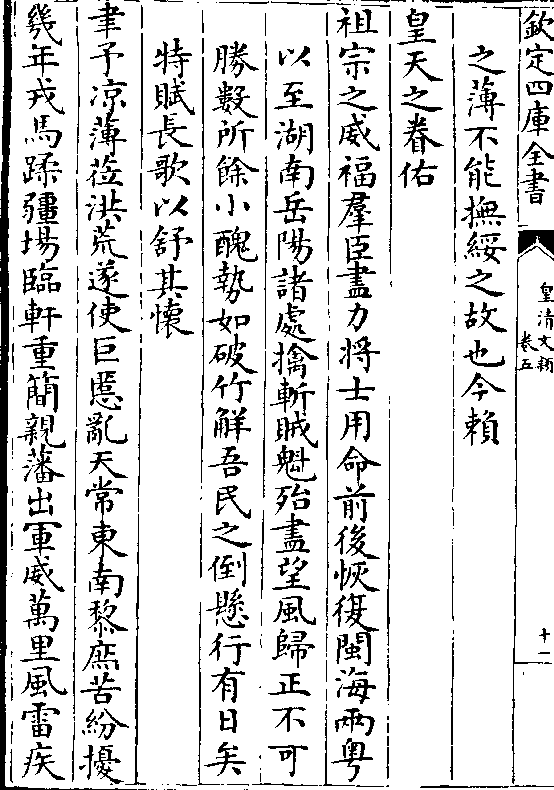 欽定四庫全書
皇清文穎
卷五
十一
之薄不能撫綏之故也今賴
皇天之眷佑
祖宗之威福羣臣盡力將士用命前後恢復閩海兩粤
以至湖南岳陽諸處擒斬賊魁殆盡望風歸正不可
勝數所餘小醜勢如破竹解吾民之倒懸行有日矣
特賦長歌以舒其懷
聿予凉薄莅洪荒遂使巨慝亂天常東南黎庶苦紛擾
幾年戎馬蹂疆場臨軒重簡親藩出軍威萬里風雷疾